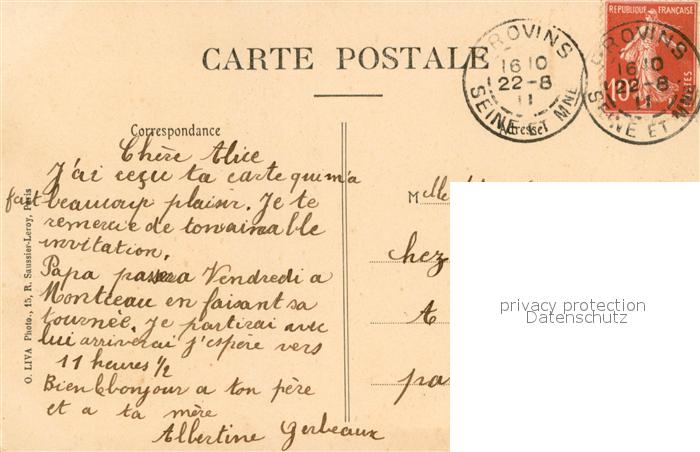 CARTE POSTALE
REPUBLIQUE FRANÇAISE
POSTES
10
PROVINS
16 10
22-8
11
SEINE ET MNE
PROVINS
16 10
22-8
11
SEINE ET MNE
Correspondance
Adresse
Chère Alice
J'ai reçu ta carte qui m'a
fait beaucoup plaisir. Je te
remercie de ton aimable
invitation.
Papa passera Vendredi a
Montceau en faisant sa
tournée. Je partirai avec
lui arriverai j'espère vers
11 heures 1/2
Bien bonjour a ton père
et a ta mère
Albertine Gerbeaux
Mlle
chez
A
pa
O. LIVA Photo., 15, R. Saussier-Leroy, Paris
privacy protection
Datenschutz